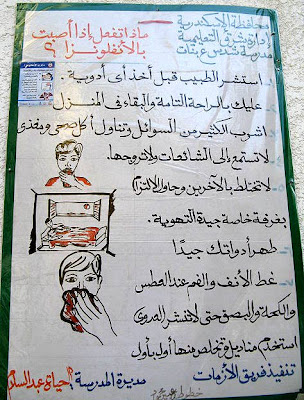 محافظة الاسكندرية
إدارة شرق التعليمية
مدرسة شدس بنات
ماذا تفعل إذا أصبت
بالأنفلونزا ؟
استشر الطبيب قبل أخذ أى أدوية.
عليك بالراحة التامة والبقاء فى المنزل
اشرب الكثير من السوائل وتناول أكل صحى ومغذى
لا تستمع إلى الشائعات ولا تروجها.
لا تختلط بالآخرين وحاول الالتزام
بغرفة خاصة جيدة التهوية.
طهر أدواتك جيدًا
غط الأنف والفم عند العطس
والكحة والبصق حتى لا تنتشر العدوى
استخدم مناديل وتخلص منها أول بأول
تنفيذ فريق الأزمات
مديرة المدرسة / حياة عبد السلام